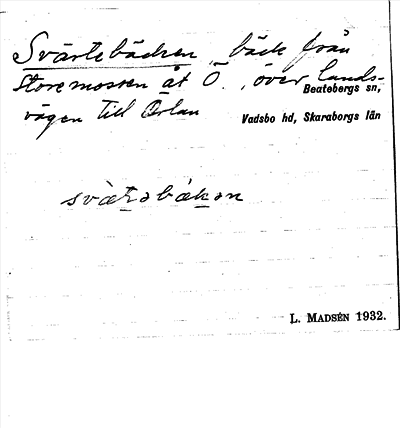 Svärtebäcken, bäck från
Storemossen åt Ö., över Lands-
Beatebergs sn,
vägen till Örlan
Vadsbo hd, Skaraborgs län
L. MADSÉN 1932.